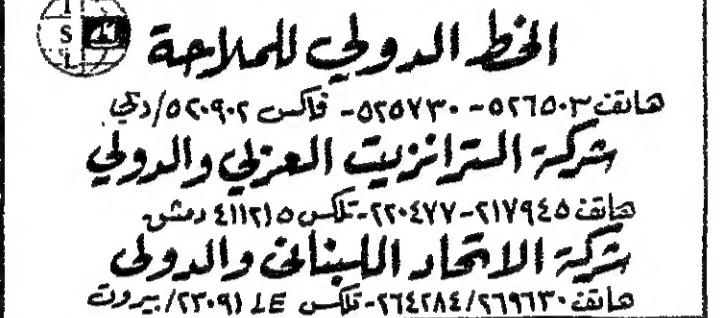 I S L
الخط الدولي للملاحة
هاتف ٥٢٦٥٠٣ - ٥٢٥٧٣٠ - فاكس ٥٢٠٩٠٢/دبي
شركة الترانزيت العربي والدولي
هاتف ٢١٧٩٤٥-٢٢٠٤٧٧-تلكس ٤١١٢١٥ دمشق
شركة الاتحاد اللبناني والدولي
هاتف ٢٦٤٢٨٤/٢٦٩٦٣٠-تلكس LE ٢٣٠٩١/بيروت